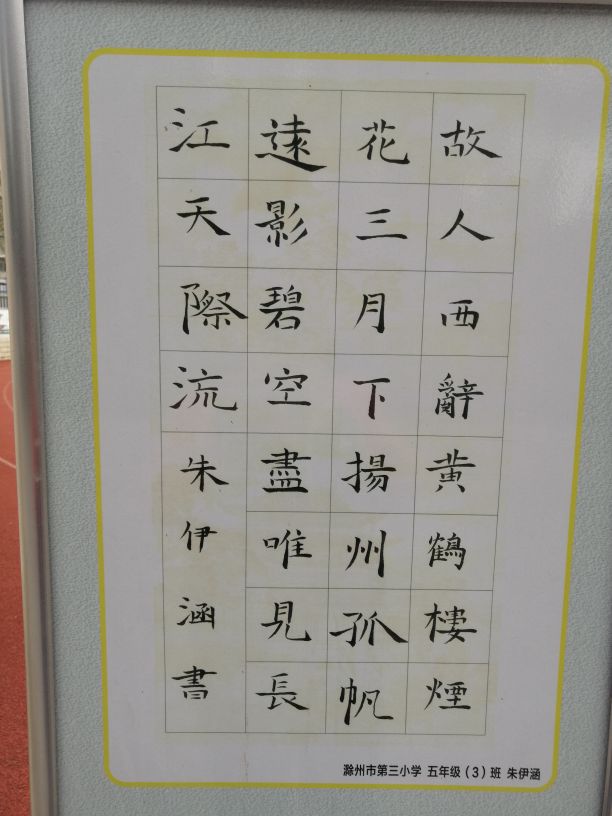 故人西辭黃鶴樓煙
花三月下揚州孤帆
遠影碧空盡唯見長
江天際流朱伊涵書
滁州市第三小学 五年级（3）班 朱伊涵